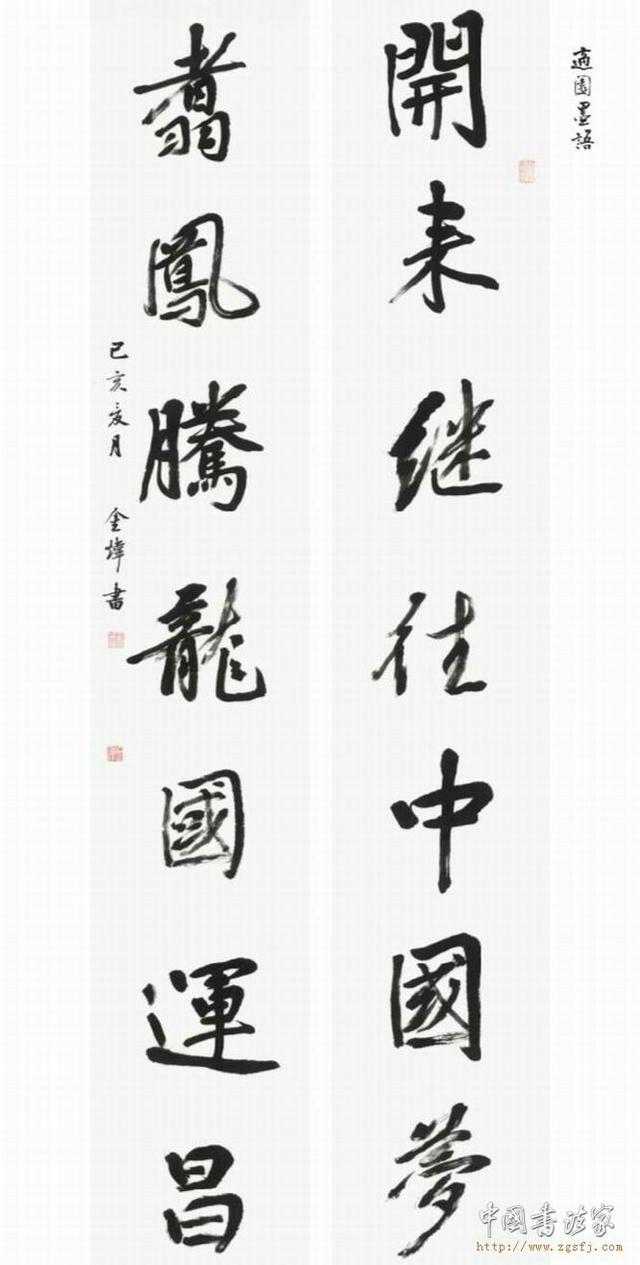 適園墨語
開来继往中國夢
翥鳳騰龍國運昌
己亥夏月 金煒書
中國書法家
http://www.zgsfj.com